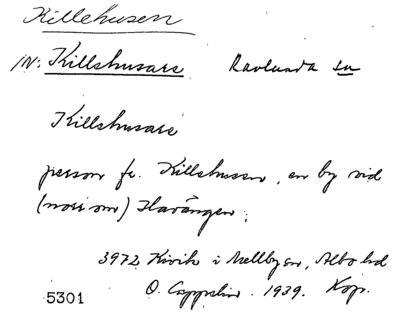 Killehusen
IN: Killshusare Ravlunda sn
Killshusare
person fr. Killehusen, en by vid
(norr om) Haväng;
3972 Kivik i Mellby sn, Albo hd
5301 O. Cappelin. 1939. Kop.